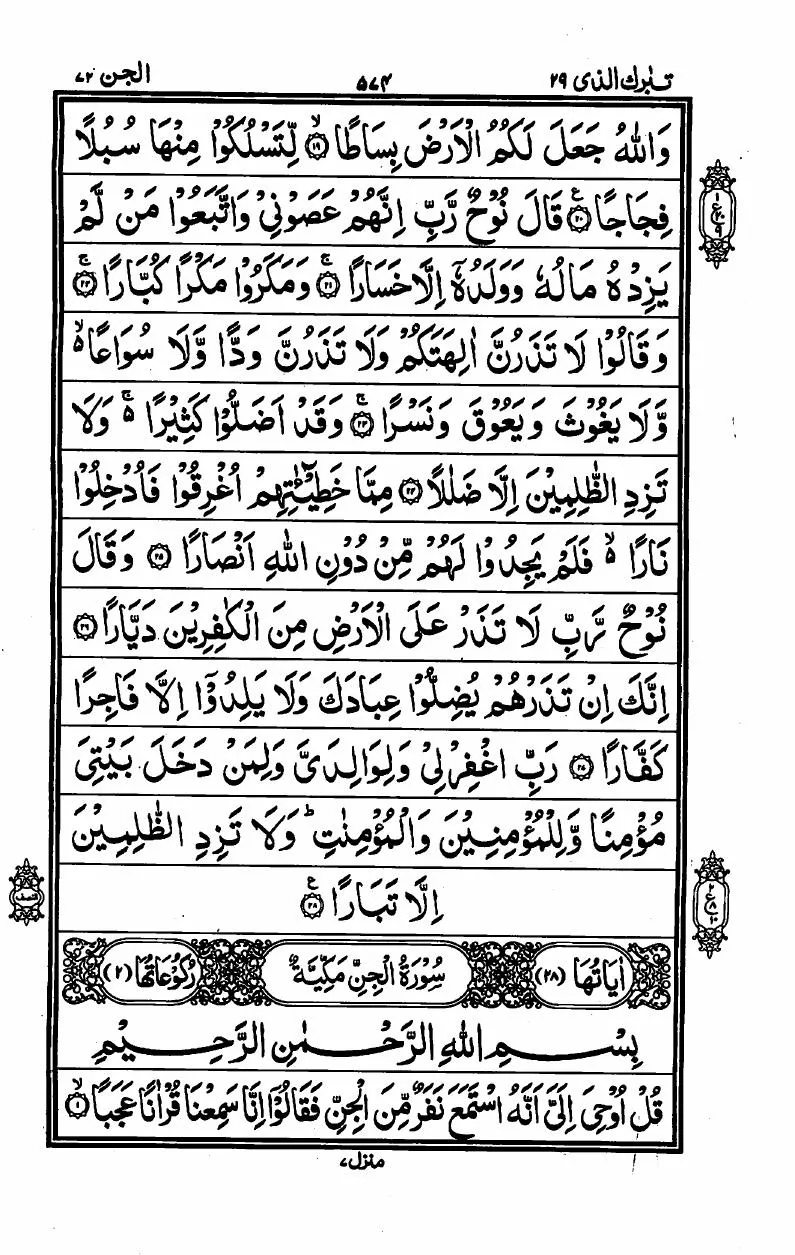 تبٰرك الذی ۲۹
۵۷۴
الجن ۷۲
وَاللّٰهُ جَعَلَ لَكُمُ الْاَرْضَ بِسَاطًا ۙ‏﴿۱۹﴾ لِّتَسْلُكُوْا مِنْهَا سُبُلًا
فِجَاجًا ۠‏﴿۲۰﴾ قَالَ نُوْحٌ رَّبِّ اِنَّهُمْ عَصَوْنِیْ وَاتَّبَعُوْا مَنْ لَّمْ
یَزِدْهُ مَالُهٗ وَوَلَدُهٗۤ اِلَّا خَسَارًا ۚ‏﴿۲۱﴾ وَمَكَرُوْا مَكْرًا كُبَّارًا ۚ‏﴿۲۲﴾
وَقَالُوْا لَا تَذَرُنَّ اٰلِهَتَكُمْ وَلَا تَذَرُنَّ وَدًّا وَّلَا سُوَاعًا ۙ۬
وَّلَا یَغُوْثَ وَیَعُوْقَ وَنَسْرًا ۚ‏﴿۲۳﴾ وَقَدْ اَضَلُّوْا كَثِیْرًا ۚ۬ وَلَا
تَزِدِ الظّٰلِمِیْنَ اِلَّا ضَلٰلًا ‏﴿۲۴﴾ مِمَّا خَطِیْٓـٰٔتِهِمْ اُغْرِقُوْا فَاُدْخِلُوْا
نَارًا ۙ۬ فَلَمْ یَجِدُوْا لَهُمْ مِّنْ دُوْنِ اللّٰهِ اَنْصَارًا ‏﴿۲۵﴾ وَقَالَ
نُوْحٌ رَّبِّ لَا تَذَرْ عَلَی الْاَرْضِ مِنَ الْكٰفِرِیْنَ دَیَّارًا ‏﴿۲۶﴾
اِنَّكَ اِنْ تَذَرْهُمْ یُضِلُّوْا عِبَادَكَ وَلَا یَلِدُوْۤا اِلَّا فَاجِرًا
كَفَّارًا ‏﴿۲۷﴾ رَبِّ اغْفِرْلِیْ وَلِوَالِدَیَّ وَلِمَنْ دَخَلَ بَیْتِیَ
مُؤْمِنًا وَّلِلْمُؤْمِنِیْنَ وَالْمُؤْمِنٰتِ ؕ وَلَا تَزِدِ الظّٰلِمِیْنَ
اِلَّا تَبَارًا ۠‏﴿۲۸﴾
اٰیَاتُهَا (۲۸) سُوْرَةُ الْجِنِّ مَكِّیَّةٌ رُكُوْعَاتُهَا (۲)
بِسْمِ اللّٰهِ الرَّحْمٰنِ الرَّحِیْمِ
قُلْ اُوْحِیَ اِلَیَّ اَنَّهُ اسْتَمَعَ نَفَرٌ مِّنَ الْجِنِّ فَقَالُوْۤا اِنَّا سَمِعْنَا قُرْاٰنًا عَجَبًا ۙ‏﴿۱﴾
منزل ۷
۱
ع ۲۰
۹
۲
ع ۸
النصف